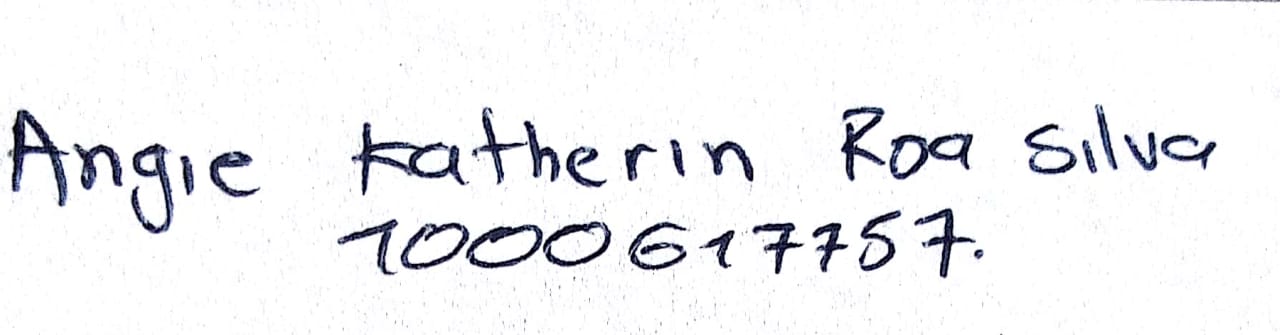 Angie Katherin Roa Silva
1000617757.